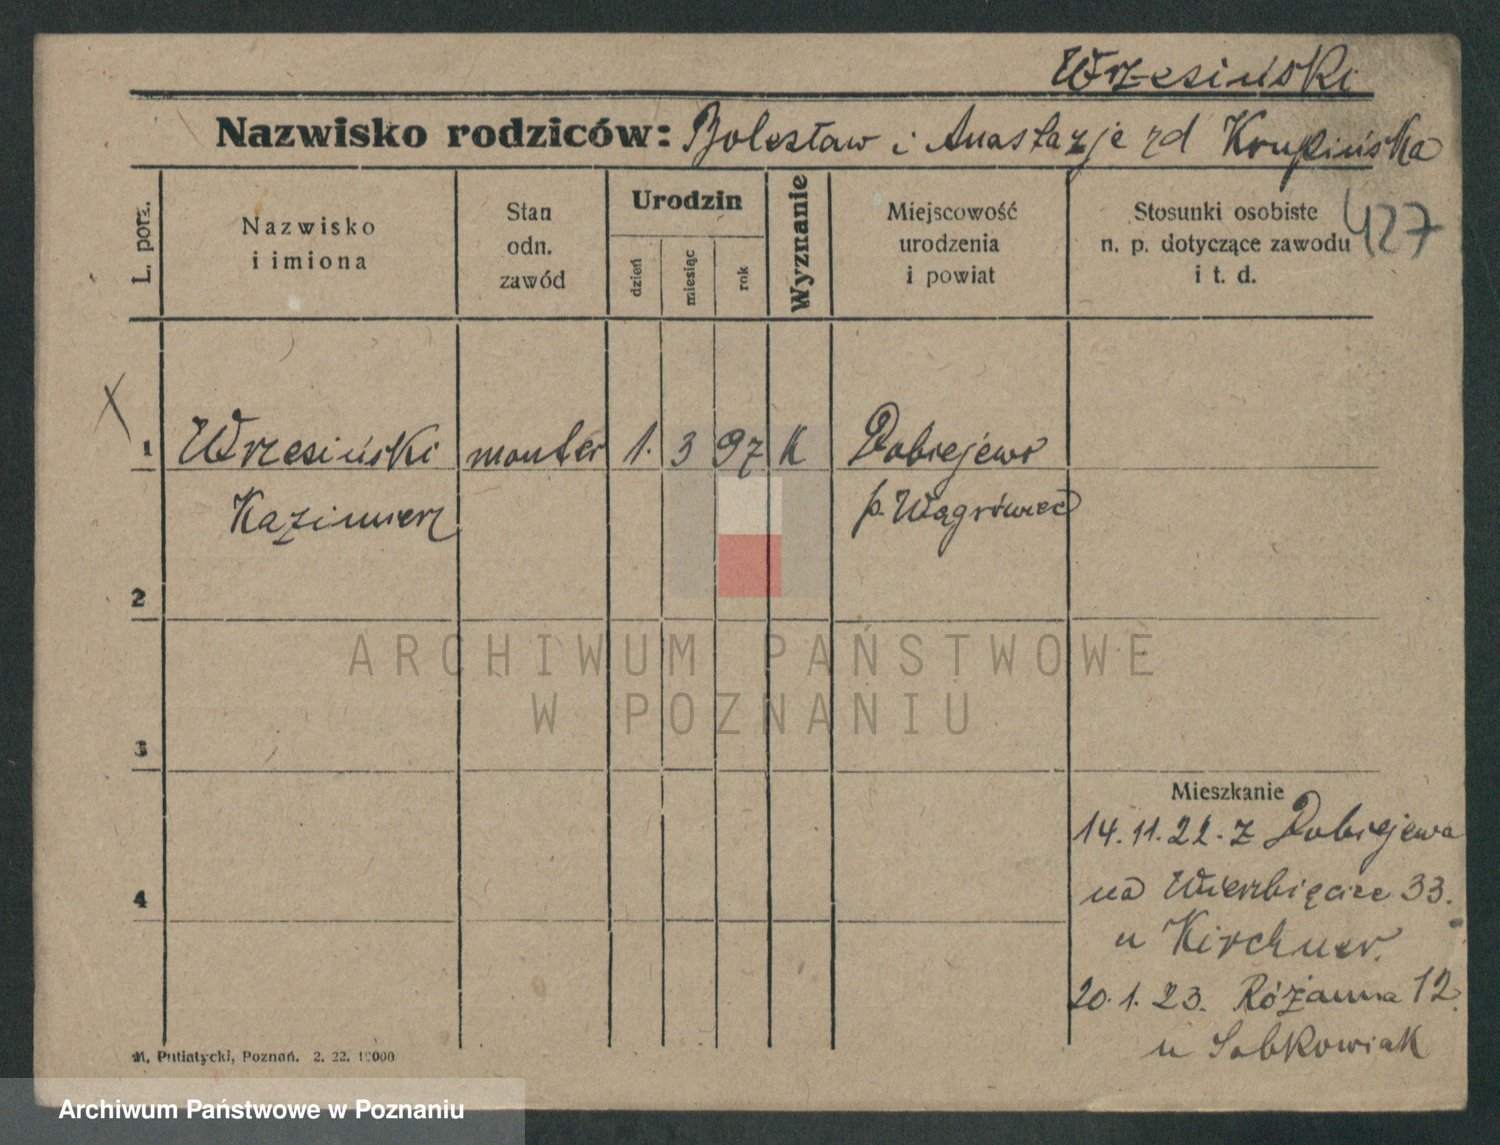 Wrzesiński
Nazwisko rodziców: Bolesław i Anastazje rd Krupińska
L. porz.
Nazwisko
i imiona
Stan
odn.
zawód
Urodzin
dzień
miesiąc
rok
Wyznanie
Miejscowość
urodzenia
i powiat
Stosunki osobiste
n. p. dotyczące zawodu
i t. d.
427
X
1 Wrzesiński monter 1. 3 97 K Dobiejewo
Kazimierz p. Wągrówiec
2
3
4
ARCHIWUM PAŃSTWOWE
W POZNANIU
Mieszkanie
14.11.22. z Dobiejewa
na Wierzbięcice 33.
u Kirchner.
20.1.23. Różanna 12
u Sobkowiak
M. Putiatycki, Poznań. 2. 22. 10000
Archiwum Państwowe w Poznaniu